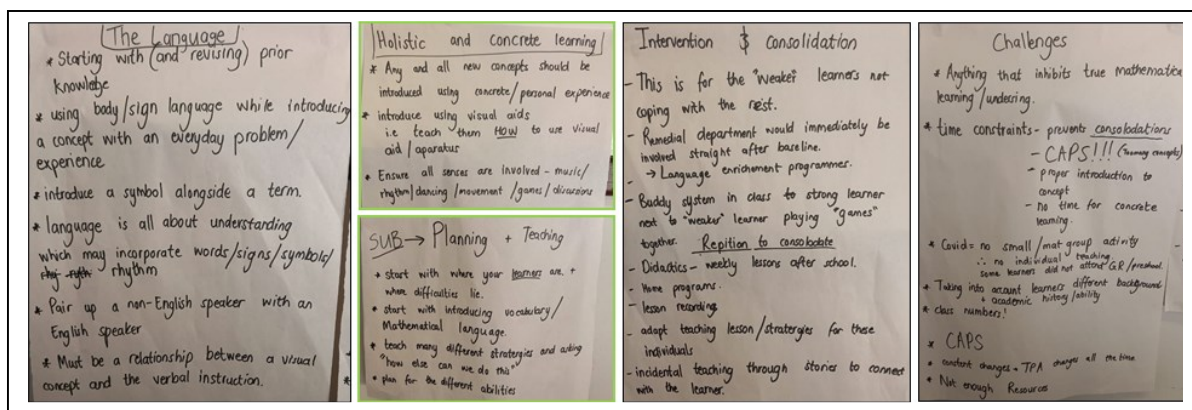 The Language
* Starting with (and revising) prior
knowledge
* using body/sign language while introducing
a concept with an everyday problem/
experience
* introduce a symbol alongside a term.
* language is all about understanding
which may incorporate words/signs/symbols/
rhythm
* Pair up a non-English speaker with an
English speaker
* Must be a relationship between a visual
concept and the verbal instruction.
Holistic and concrete learning
* Any and all new concepts should be
introduced using concrete/personal experience
* introduce using visual aids
i.e teach them HOW to use visual
aid/apparatus
* Ensure all senses are involved - music/
rhythm/dancing/movement/games/discursions
SUB → Planning + Teaching
* start with where your learners are +
where difficulties lie.
* start with introducing vocabulary/
Mathematical language.
* teach many different strategies and asking
"how else can we do this"
* plan for the different abilities
Intervention & Consolidation
- This is for the "weaker" learners not
coping with the rest.
- Remedial department would immediately be
involved straight after baseline.
→ Language enrichement programmes.
- Buddy system in class to strong learner
next to "weaker" learner playing "games"
together. Repition to consolodate
- Didactics - weekly lessons after school.
- Home programs.
- lesson recording
- adapt teaching lesson/stratergies for these
individuals
- incidental teaching through stories to connect
with the learner.
Challenges
* Anything that inhibits true mathematica
learning/underssing.
* time constraints - prevents consolodations
- CAPS!!! (Too many concepts)
- proper introduction to
concept
- no time for concrete
learning.
* Covid = no small/mat group activity
∴ no individual teaching
some learners did not attend GR/preschool.
* Taking into account learners different background
+ academic history/ability
* class numbers!
* CAPS
* constant changes - TPA changes all the time
* Not enough Resources